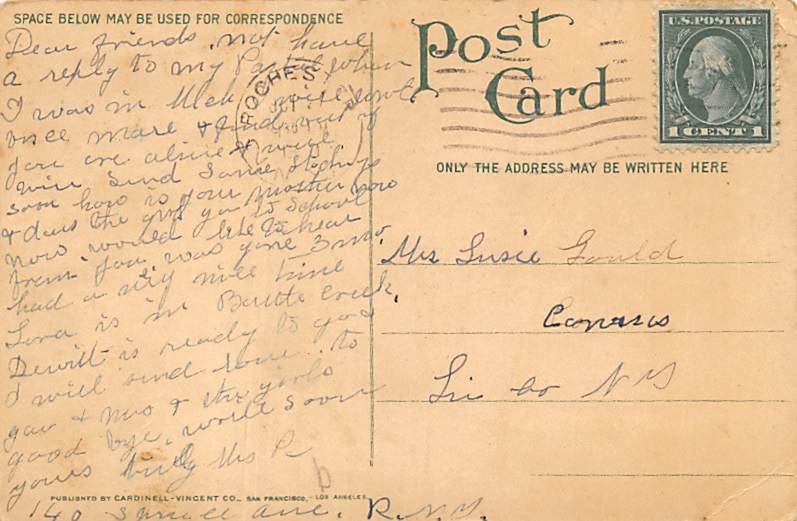 SPACE BELOW MAY BE USED FOR CORRESPONDENCE
Dear friends, not have
a reply to my Postal when
I was in Mich, will
once more & find out if
you are alive & well
will send some
soon how is your mother
& does the girls go to school now
now would like to hear
from you was gone 3 mo,
had a very nice time
Lora is in Battle Creek,
Dewitt is ready to go
I will send love to
you & & the girls
good bye, write soon
yours truly Mrs R
140 Ave, R. N.Y.
PUBLISHED BY CARDINELL-VINCENT CO., SAN FRANCISCO, LOS ANGELES
Post
Card
ROCHES
U.S. POSTAGE
1 CENT 1
ONLY THE ADDRESS MAY BE WRITTEN HERE
Mrs Susie Gould
Conesus
Liv Co N Y